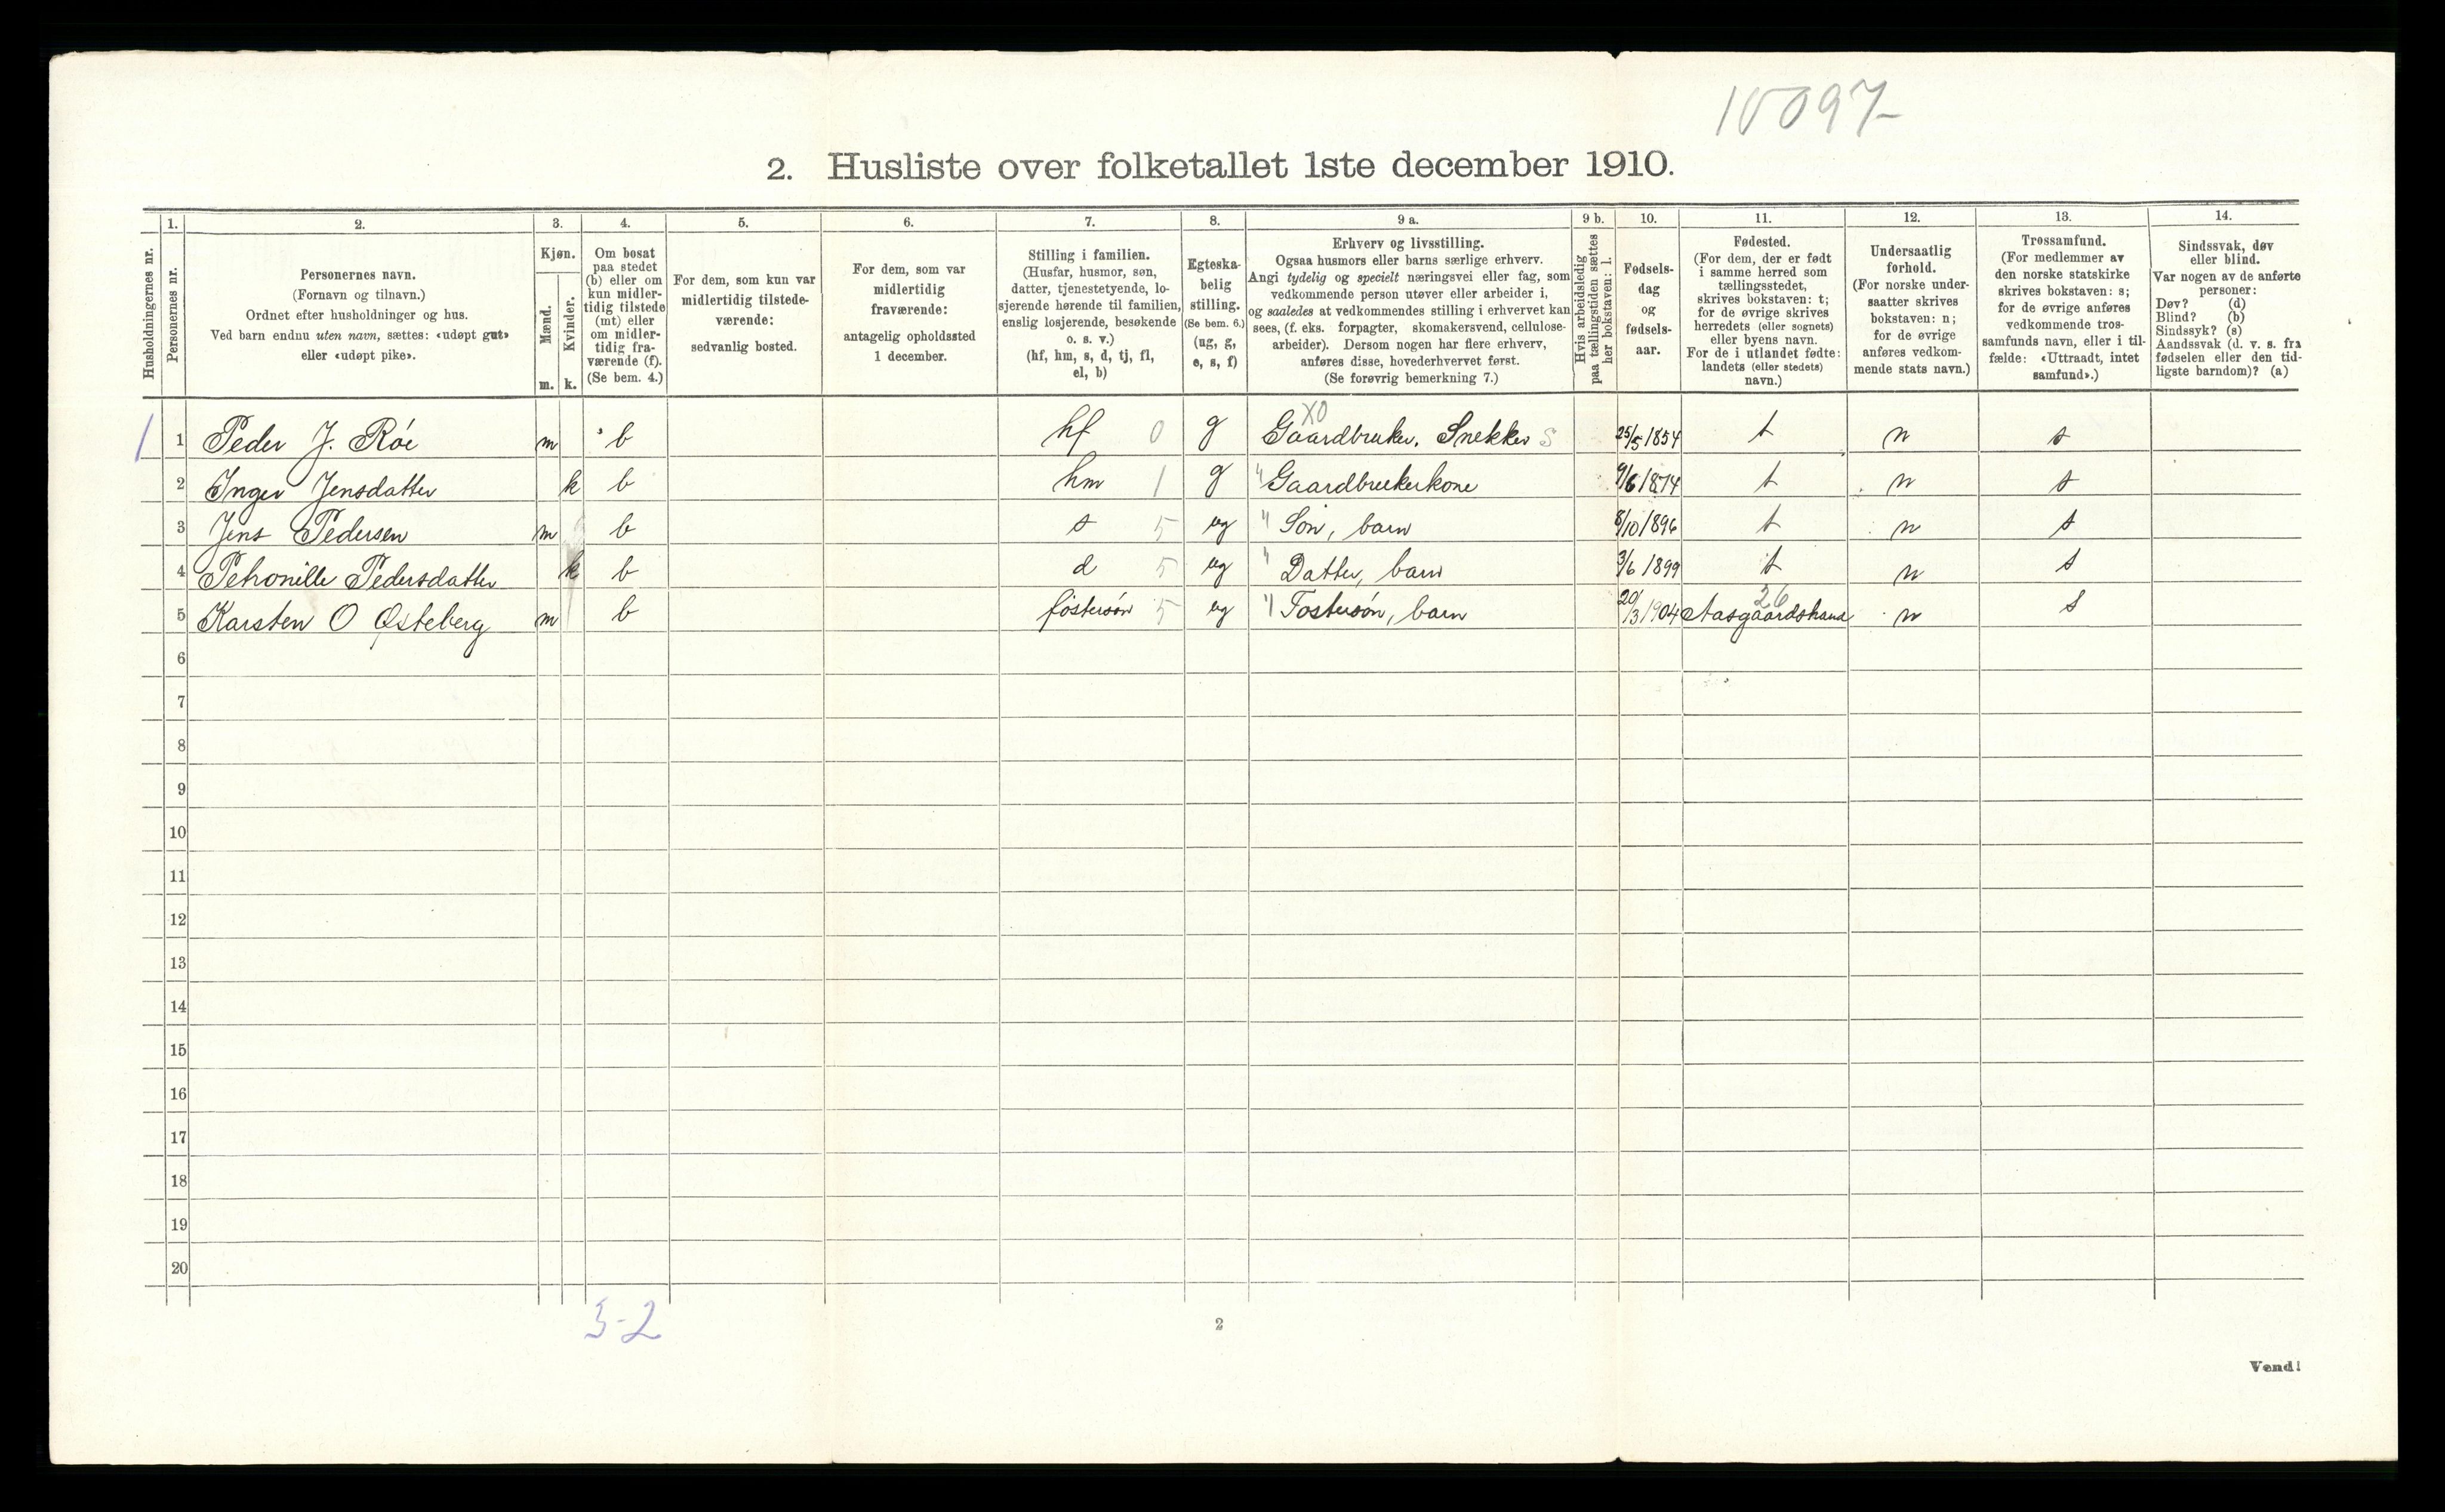 10097
2. Husliste over folketallet 1ste december 1910.
Husholdningernes nr.
1.
Personernes nr.
2.
Personernes navn.
(Fornavn og tilnavn.)
Ordnet efter husholdninger og hus.
Ved barn endnu uten navn, sættes: «udøpt gut»
eller «udøpt pike».
3.
Kjøn.
Mænd.
m.
Kvinder.
k.
4.
Om bosat
paa stedet
(b) eller om
kun midler-
tidig tilstede
(mt) eller
om midler-
tidig fra-
værende (f).
(Se bem. 4.)
5.
For dem, som kun var
midlertidig tilstede-
værende:
sedvanlig bosted.
6.
For dem, som var
midlertidig
fraværende:
antagelig opholdssted
1 december.
7.
Stilling i familien.
(Husfar, husmor, søn,
datter, tjenestetyende, lo-
sjerende hørende til familien,
enslig losjerende, besøkende
o. s. v.)
(hf, hm, s, d, tj, fl,
el, b)
8.
Egteska-
belig
stilling.
(Se bem. 6.)
(ug, g,
e, s, f)
9 a.
Erhverv og livsstilling.
Ogsaa husmors eller barns særlige erhverv.
Angi tydelig og specielt næringsvei eller fag, som
vedkommende person utøver eller arbeider i,
og saaledes at vedkommendes stilling i erhvervet kan
sees, (f. eks. forpagter, skomakersvend, cellulose-
arbeider). Dersom nogen har flere erhverv,
anføres disse, hovederhvervet først.
(Se forøvrig bemerkning 7.)
9 b.
Hvis arbeidsledig
paa tællingstiden sættes
her bokstaven: l.
10.
Fødsels-
dag
og
fødsels-
aar.
11.
Fødested.
(For dem, der er født
i samme herred som
tællingsstedet,
skrives bokstaven: t;
for de øvrige skrives
herredets (eller sognets)
eller byens navn.
For de i utlandet fødte:
landets (eller stedets)
navn.)
12.
Undersaatlig
forhold.
(For norske under-
saatter skrives
bokstaven: n;
for de øvrige
anføres vedkom-
mende stats navn.)
13.
Trossamfund.
(For medlemmer av
den norske statskirke
skrives bokstaven: s;
for de øvrige anføres
vedkommende tros-
samfunds navn, eller i til-
fælde: «Uttraadt, intet
samfund».)
14.
Sindssvak, døv
eller blind.
Var nogen av de anførte
personer:
Døv? (d)
Blind? (b)
Sindssyk? (s)
Aandssvak (d. v. s. fra
fødselen eller den tid-
ligste barndom)? (a)
XO
1 1 Peder J. Röe m b hf 0 g Gaardbruker. Snekker S 25/5 1854 t n s
2 Inger Jensdatter k b hm 1 g " Gaardbrukerkone 9/6 1874 t n s
3 Jens Pedersen m b s 5 ug " Sön, barn 8/10 1896 t n s
4 Petronille Pedersdatter k b d 5 ug " Datter, barn 3/6 1899 t n s
26
5 Karsten O Østeberg m b fostersön 5 ug " Fostersön, barn 20/3 1904 Aasgaardstrand n s
6
7
8
9
10
11
12
13
14
15
16
17
18
19
20
3-2
2
Vend!